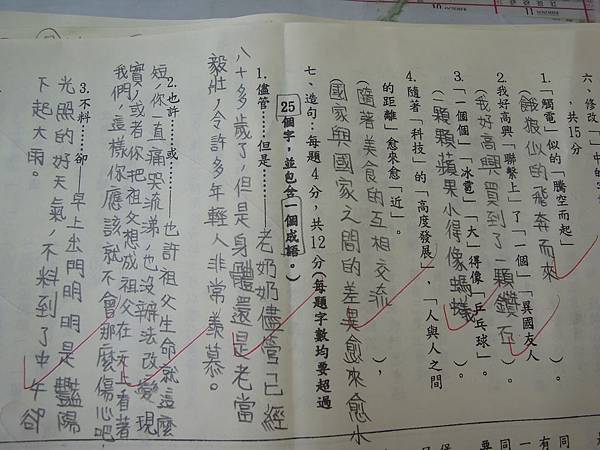 六、修改「 」中的
，共15分
1.「觸電」似的「騰空而起」
(餓狼似的飛奔而來
2.我好高興「聯繫上」了「一個」「異國友人
(我好高興買到了一顆鑽石)。
3.「一個個」「冰雹」「大」得像「乒乓球」。
(一顆顆蘋果小得像螞蟻)。
4.隨著「科技」的「高度發展」，「人與人之間
的距離」愈來愈「近」。
(隨著美食的互相交流)，
(國家與國家之間的差異愈來愈小
七、造句：每題4分，共12分(每題字數均要超過
25個字，並包含一個成語。)
1.儘管……但是……老奶奶儘管已經
八十多歲了，但是身體還是老當
毅壯，令許多年輕人非常羨慕。
2.也許……或……也許祖父生命就這麼
短，你一直痛哭流涕，也沒辦法改變現
實，或者你把祖父想成祖父在天上看著
我們，這樣你應該就不會那麼傷心吧
3.不料……卻……早上出門明明是豔陽
光照的好天氣，不料到了中午卻
下起大雨。